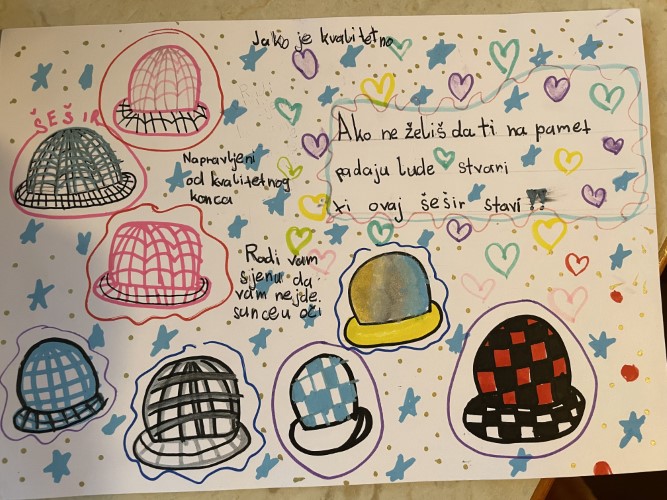 Jako je kvalitetno
ŠEŠIR
Napravljeni
od kvalitetnog
konca
Ako ne želiš da ti na pamet
padaju lude stvari
ti ovaj šešir stavi!!
Radi vam
sjenu da
vam nejde
sunce u oči